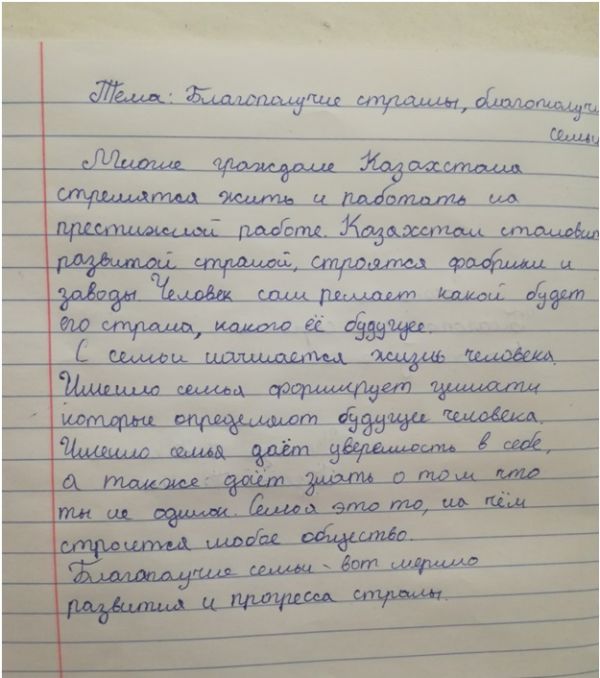 Тема: Благополучие страны, благополучи
семьи
Многие граждане Казахстана
стремятся жить и работать на
престижной работе. Казахстан становит
развитой страной, строятся фабрики и
заводы Человек сам решает какой будет
его страна, какого её будущее.
С семьи начинается жизнь человека.
Именно семья формирует
которые определяют будущее человека.
Именно семья даёт уверенность в себе,
а также даёт знать о том что
ты не одинок. Семья это то, на чём
строится любое общество.
Благополучие семьи - вот мерило
развития и прогресса страны.